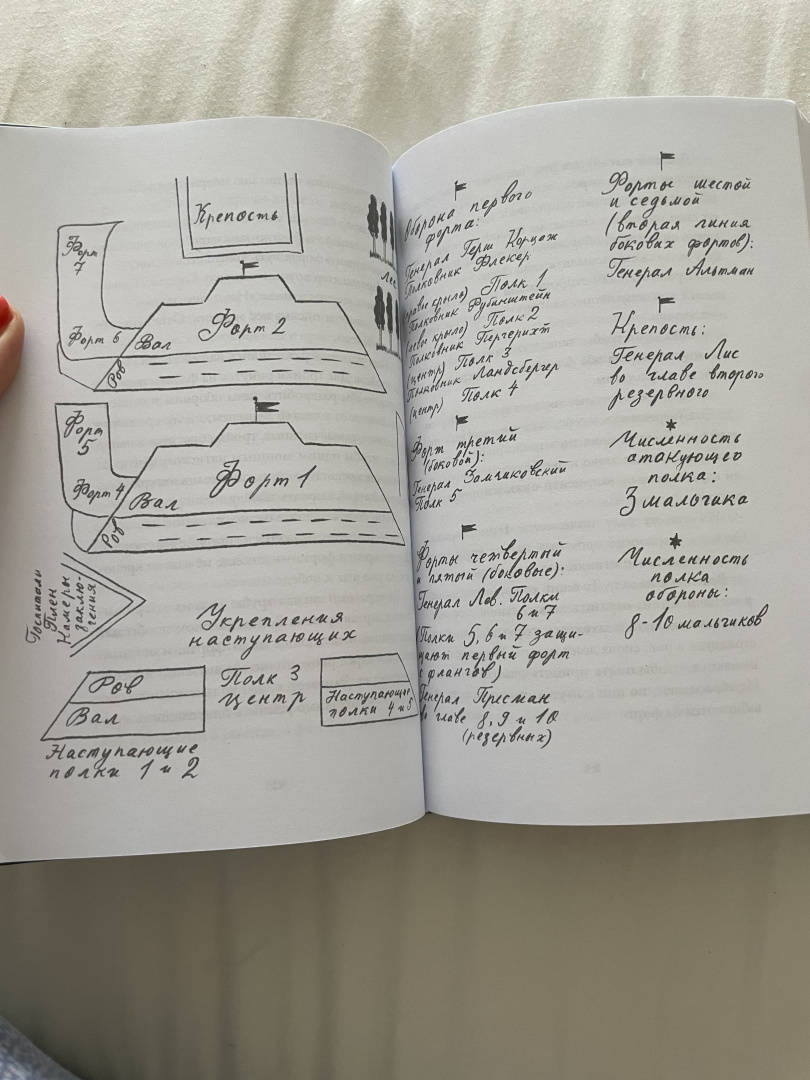 Крепость
Форт
7
Форт 6
Вал
Форт 2
Ров
Лес
Форт
5
Форт 4
Вал
Форт 1
Ров
Госпитали
Плен
Камеры
заклю-
чения
Укрепления
наступающих
Ров
Вал
Полк 3
центр
Наступающие
полки 4 и 5
Наступающие
полки 1 и 2
Оборона первого
форта:
Генерал Герш Корцаж
Полковник Флекер
(правы крыло) Полк 1
Полковник Рубинштейн
(левы крыло) Полк 2
Полковник Перчерихт
(центр) Полк 3
Полковник Ландсбергер
(центр) Полк 4
Форт третий
(боковой):
Генерал Замчиковский
Полк 5
Форты четвертый
и пятый (боковые):
Генерал Лев. Полки
6 и 7
(Полки 5, 6 и 7 защи-
щают первый форт
с флангов)
Генерал Пресман
во главе 8, 9 и 10
(резервных)
Форты шестой
и седьмой
(вторая линия
боковых фортов):
Генерал Альтман
Крепость:
Генерал Лис
во главе второго
резервного
*
Численность
атакующего
полка:
3 мальчика
*
Численность
полка
обороны:
8-10 мальчиков